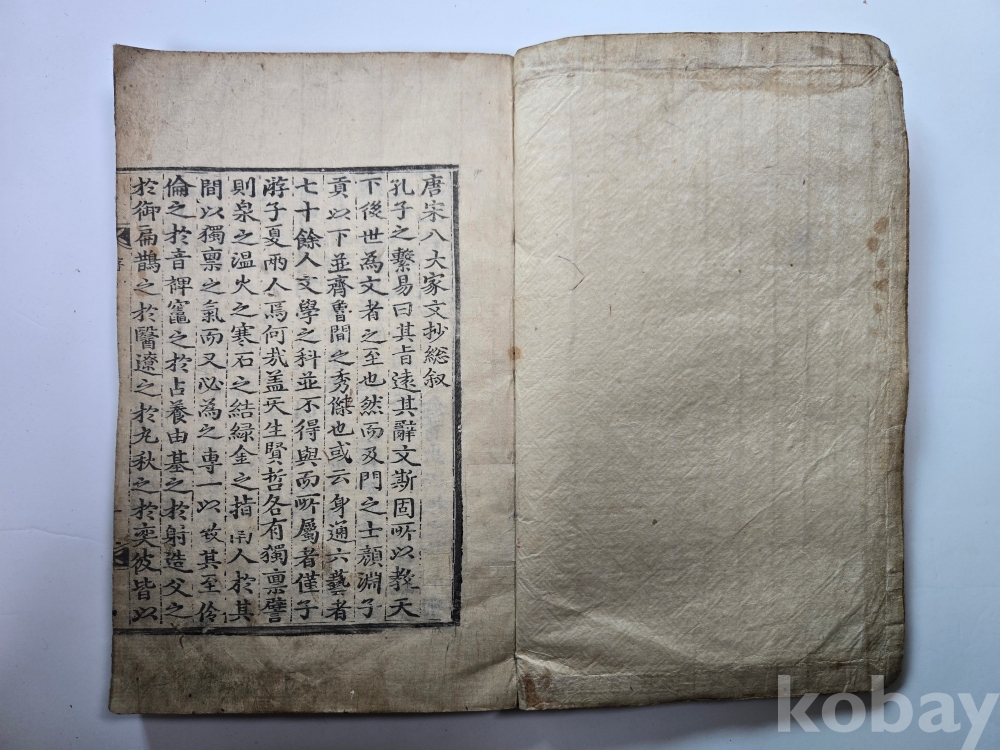 唐宋八大家文抄総叙
孔子之繫易曰其旨遠其辭文斯固所以教天
下後世為文者之至也然而及門之士顔淵子
貢以下並齊魯間之秀傑也或云身通六藝者
七十餘人文學之科並不得與而所屬者僅子
游子夏兩人焉何㦲盖天生賢哲各有獨禀譬
則泉之温火之寒石之結緑金之指南人於其
間以獨禀之氣而又必為之專一以致其至伶
倫之於音裨竈之於占養由基之於射造父之
於御扁鵲之於醫遼之於九秋之於奕彼皆以
kobay